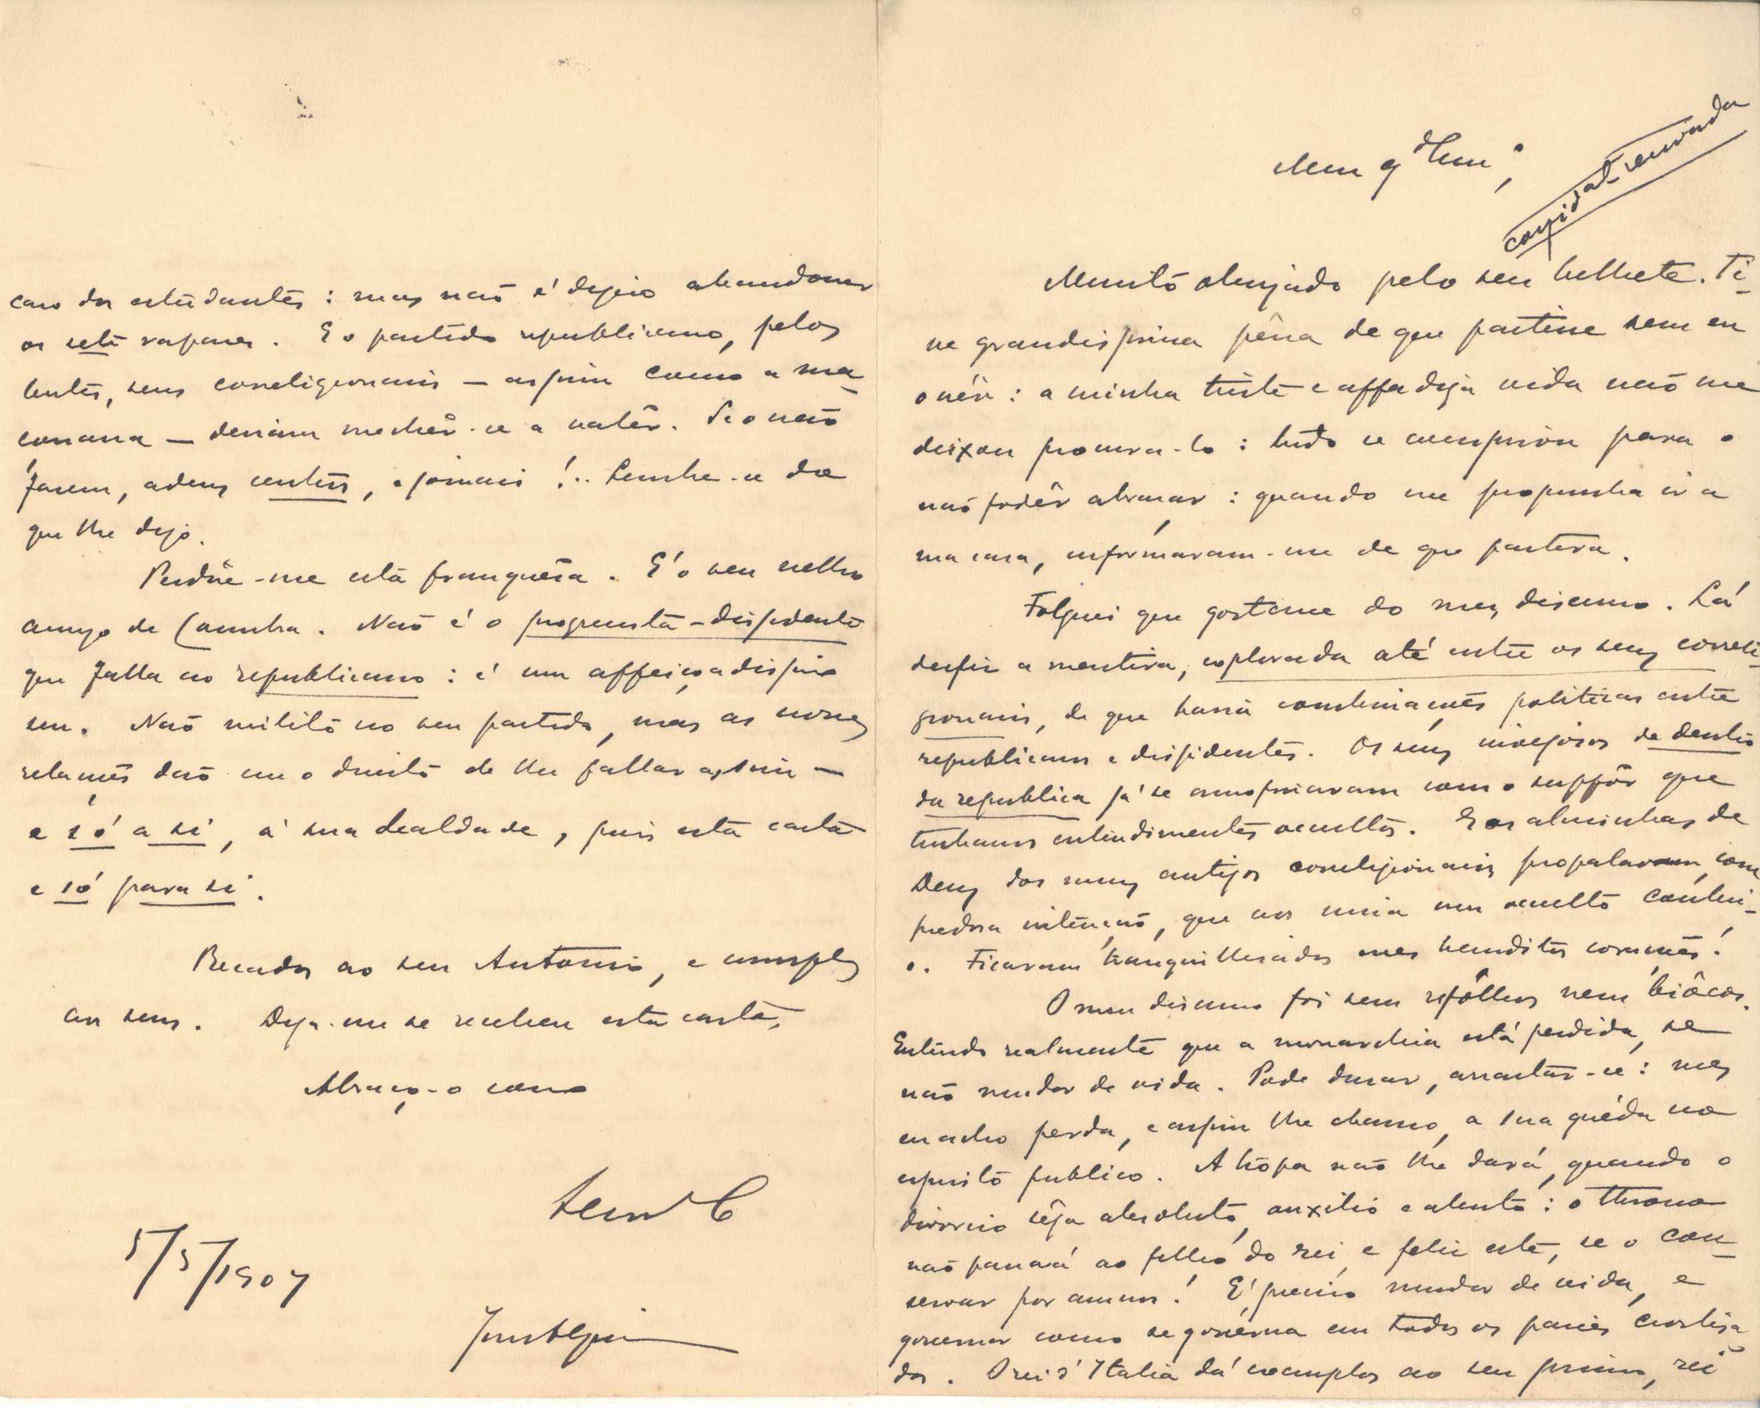 confid.al-reservada
Meu q.do Am.o;
Muito obrigado pelo seu bilhete. Ti-
ve grandissima pêna de que partisse sem eu
o vêr: a minha triste e affadiga vida não me
deixou procura-lo: tudo se conspirou para o
não podêr abraçar: quando me propunha ir a
sua casa, informaram-me de que partira.
Folguei que gostasse do meu discurso. Lá
desfiz a mentira, explorada até entre os seus correli-
gionarios, de que havia combinações politicas entre
republicanos e dissidentes. Os seus invejosos de dentro
da republica já se amofinavam com o suppôr que
tinhamos entendimentos occultos. E as alminhas de
Deus dos meus antigos correligionarios propalavam, com
piedosa intenção, que nos unia um occulto conlui-
o. Ficaram tranquillisados esses benditos corações!
O meu discurso foi sem refôlhos nem biôcos.
Entendo realmente que a monarchia está perdida, se
não mudar de vida. Pode durar, arrastar-se: mas
eu acho perda, e assim lhe chamo, a sua quéda no
espirito publico. A trópa não lhe dará, quando o
divorcio sêja absoluto, auxilio e alento: o throno
não passará ao filho do rei, e feliz este, se o con-
servar por annos! E' preciso mudar de vida, e
governar como se govérna em todos os paises civilisa-
dos. O rei d'Italia dá exemplos ao seu primo, rei
caso dos estudantes: mas não é digno abandonar
os sete rapazes. E o partido republicano, pelos
lentes, seus correligionarios — assim como a ma-
çonaria — deviam mechêr-se a valêr. Se o não
fazem, adeus lentes, e jornais!.. Lembre-se do
que lhe digo.
Perdôe-me esta franquêsa. E' o seu velho
amigo de Coimbra. Não é o progressista-dissidente
que falla ao republicano: é um affeiçoadissimo
seu. Não milito no seu partido, mas as nossas
relações dão-me o direito de lhe fallar assim —
e só a si, á sua lealdade, pois esta carta
é só para si.
Recados ao seu Antonio, e cumpts
aos seus. Diga-me se recebeu esta carta,
Abraço-o como
5/5/1907